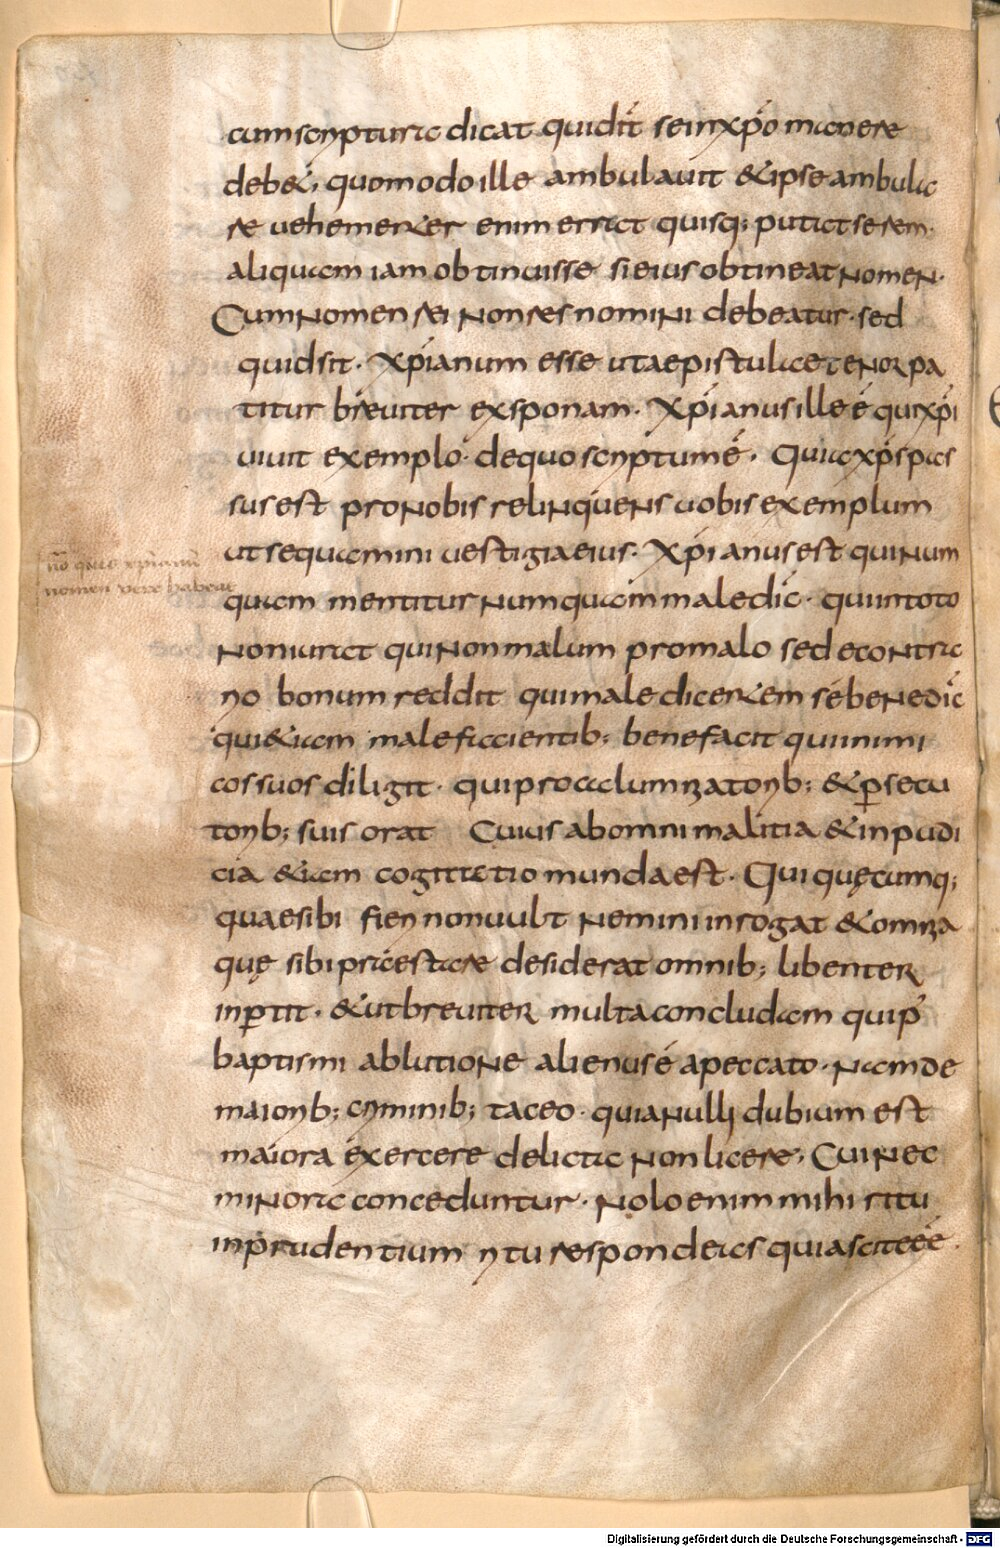 cumscripturadicat quidic̄ seinxp̄o manere
deb&, quomodoille ambulauit &ipseambula
re uehementer enim errat quisq; putatserem
aliquam iam obtinuisse sieiusobtineatnomen·
Cumnomen rei nonresnomini debeatur·sed
quidsit· xp̄ianum esse utaepistulaetenorpa
titur breuiter exsponam· Xp̄ianusille ē quixp̄i
uiuit exemplo· dequoscriptumē· Quiaxp̄spas
susest pronobis relinquens uobisexemplum
utsequamini uestigiaeius· Xp̄ianusest quinum
nō quis xp̄ianū
nomen vere habeat
quam mentitur numquammaledic̄· quiintoto
noniurat quinonmalum promalo sedecontra
rio bonum reddit quimaledicentem sebenedic̄
qui&iam malefacientib; benefacit quiinimi
cossuosdiligit· quiprocalumniatorib; &p̄secu
torib; suis orat Cuius abomnimalitia &inpudi
cia &iam cogitatiomundaest· Qui quęcumq;
quaesibi fieri nonuult neminiinrogat &omnia
quę sibipraestare desiderat omnib; libenter
inp̄tit· &utbreuiter multaconcludam quip̄
baptismi ablutione alienusē apeccato· namde
maiorib; criminib; taceo· quianulli dubium est
maiora exercere delicta nonlicere, Cuinec
minora conceduntur· noloenim mihi ritu
inprudentium ritu respondeas quiascitēē·
Digitalisierung gefördert durch die Deutsche Forschungsgemeinschaft - DFG